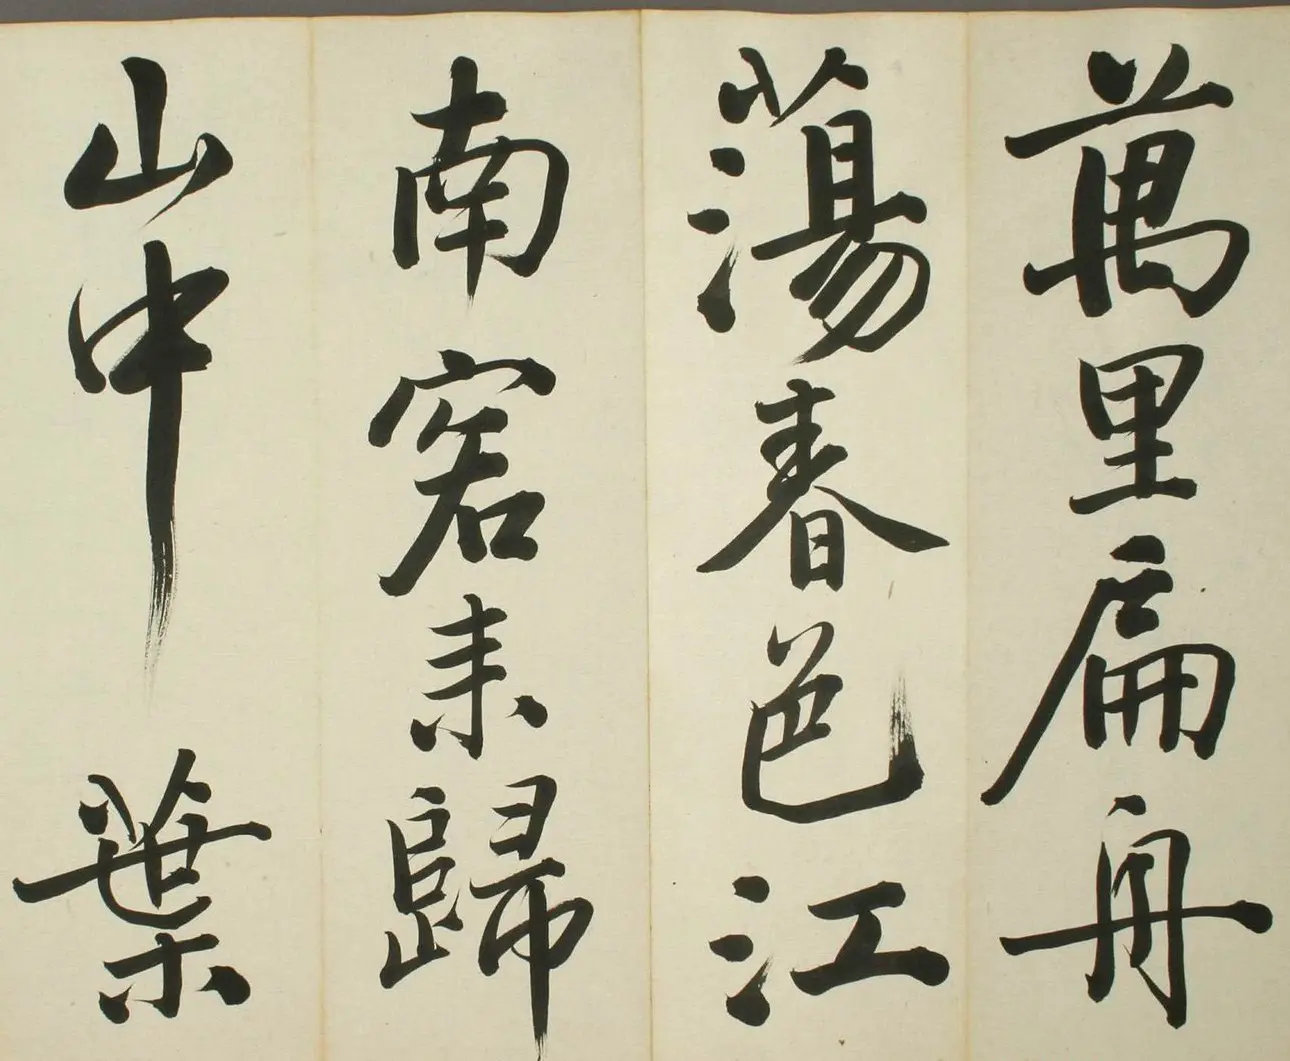 萬里扁舟
蕩春色江
南客未歸
山中葉